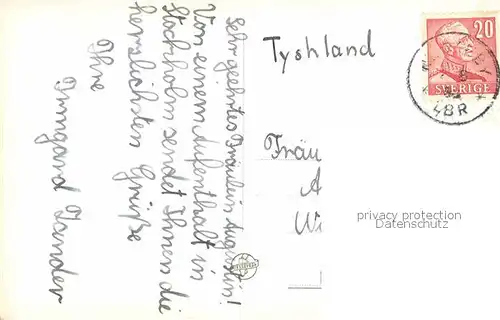 Sehr geehrtes Fräulein Augustin!
Von einem Aufenthalt in
Stockholm sendet Ihnen die
herzlichsten Grüße
Ihre
Irmgard Zander
Tyshland
Fräu
A
Wi
20
SVERIGE
LBR
privacy protection
Datenschutz